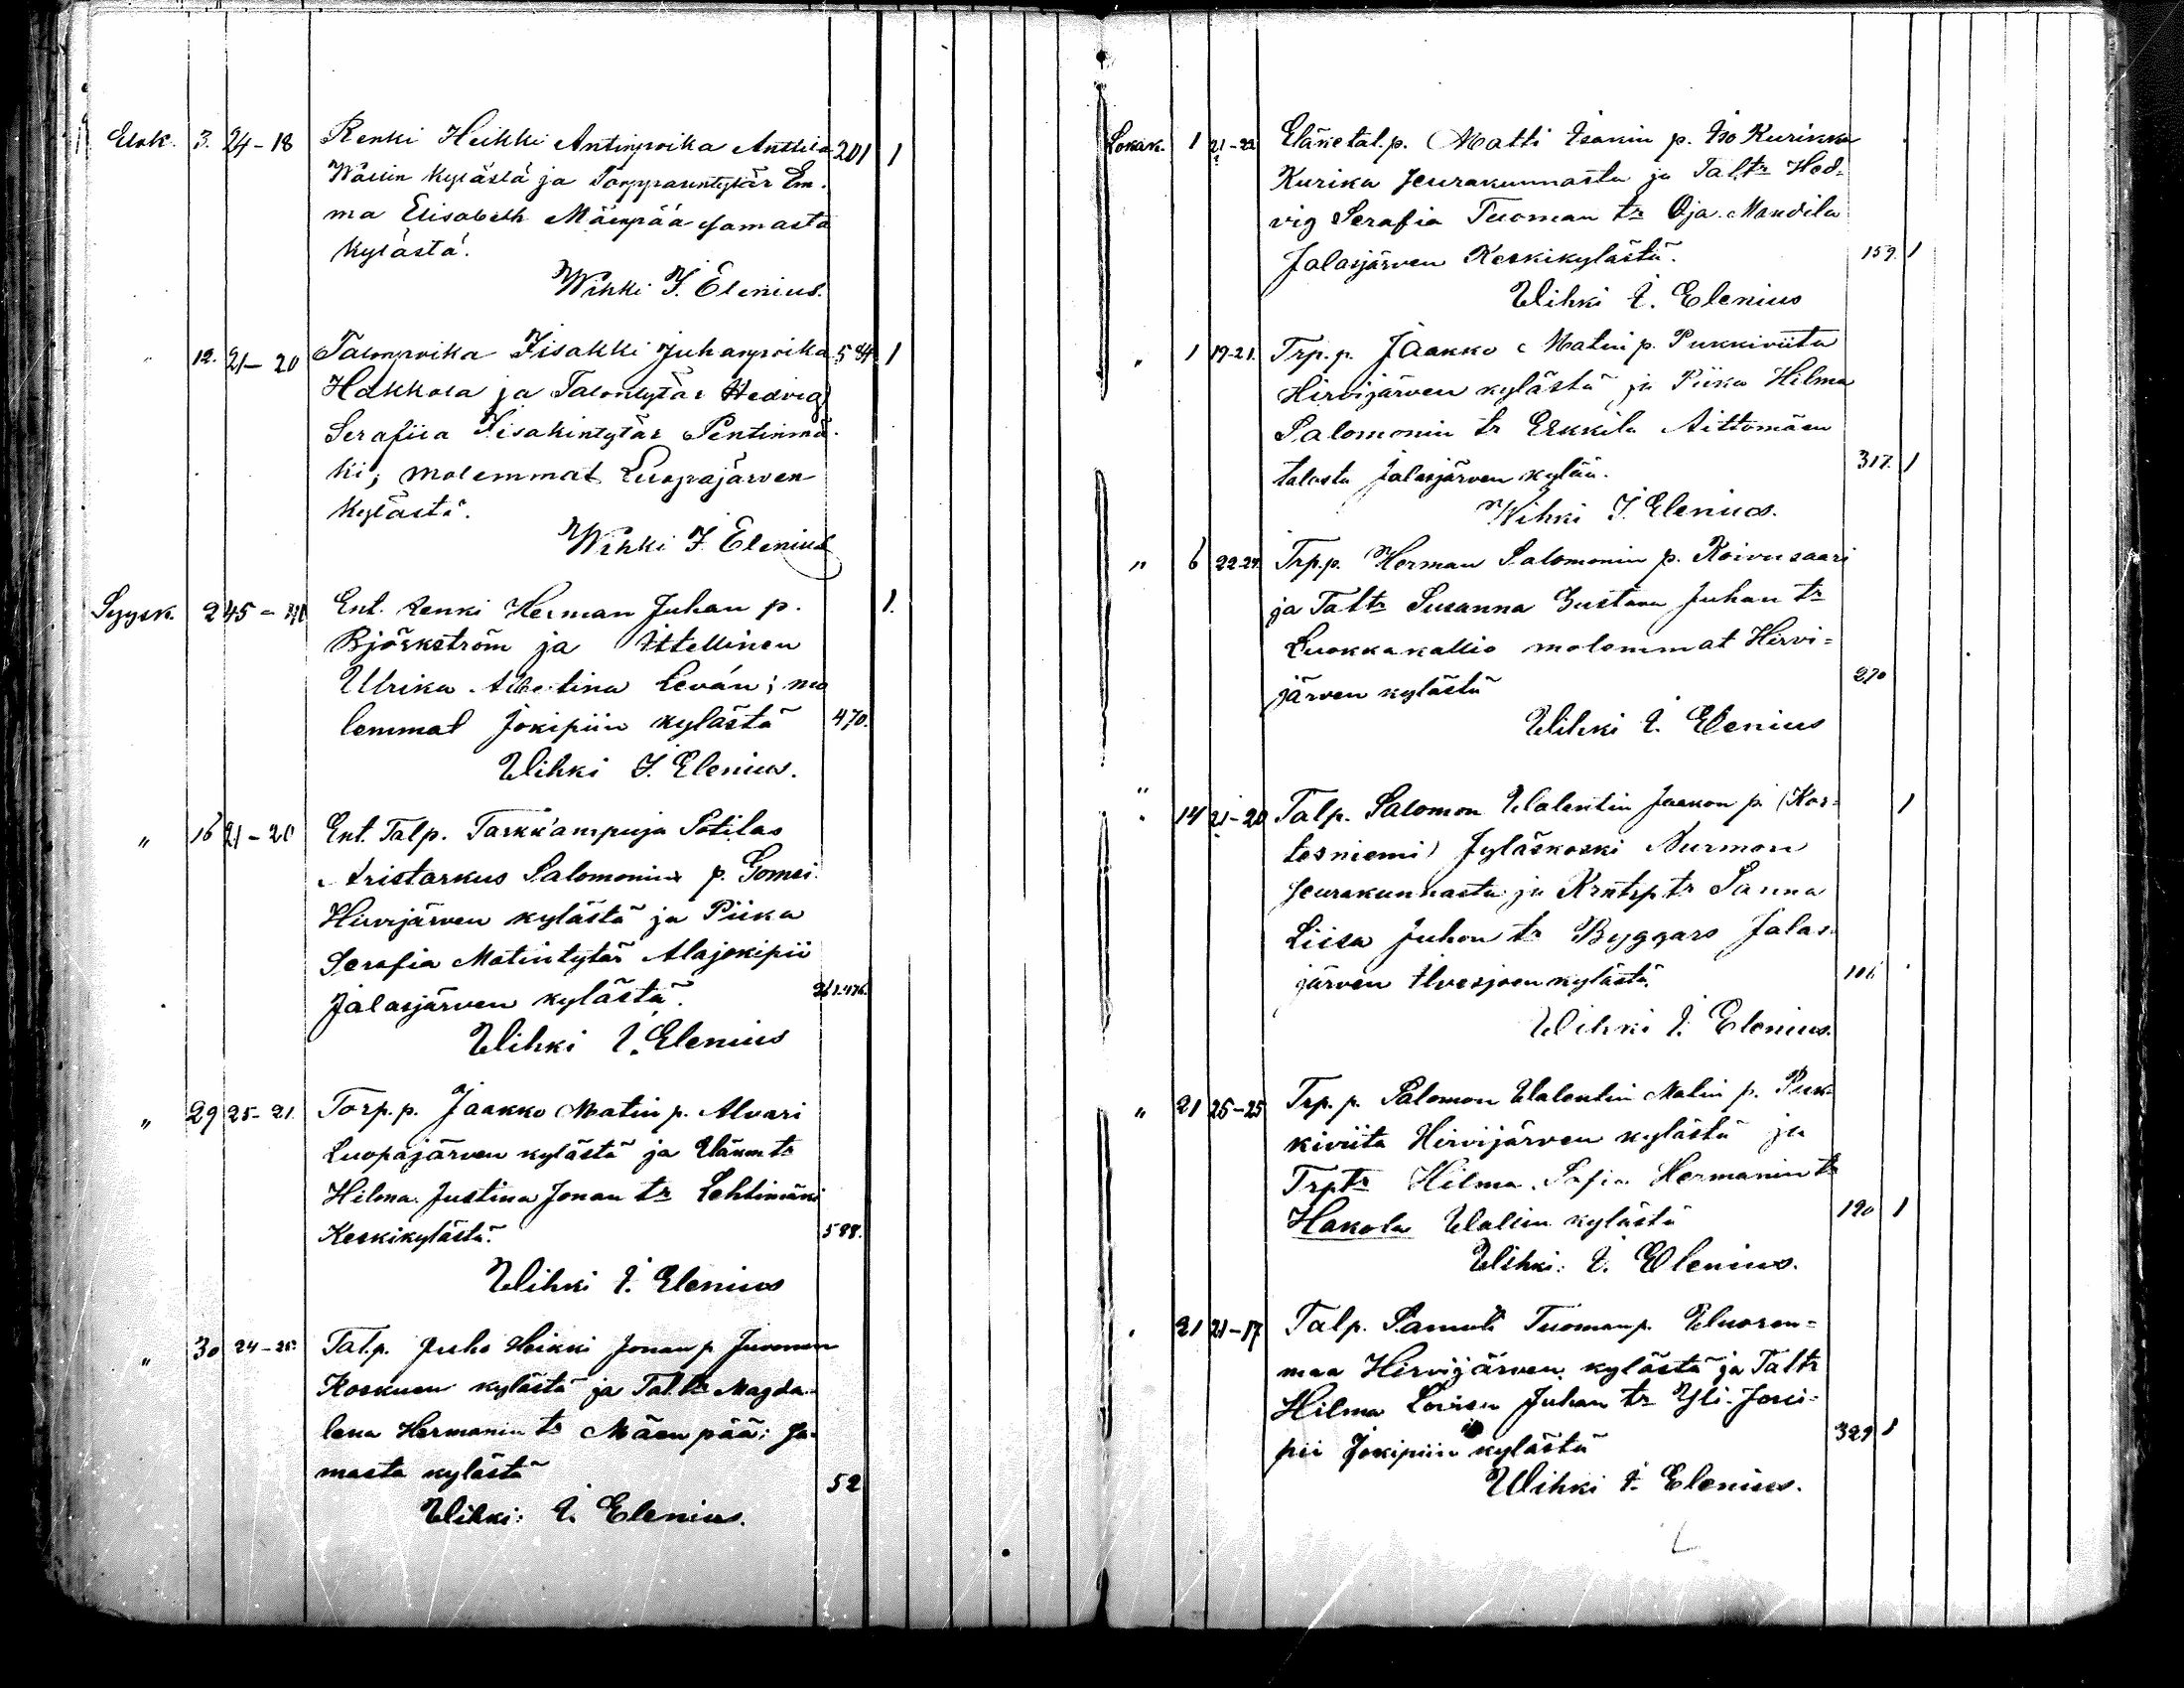 Elok. 3. 24-18 Renki Heikki Antinpoika Anttila 201 1
Wallin kylästä ja Torpparintytär Em-
ma Elisabeth Mäenpää samasta
kylästä.
Wihki I. Elenius.
" 12. 21-20 Talonpoika Iisakki Juhanpoika 594 1
Hakkola ja Talontytär Hedvig
Serafiia Iisakintytär Pentinmä-
ki; molemmat Luopajärven
kylästä.
Wihki I. Elenius
Syysk. 2 45- Ent. Renki Herman Juhan p. 1.
Björkström ja Itsellinen
Ulrika Albertina Leván; mo
lemmat Jokipiin kylästä 470.
Wihki I. Elenius.
" 16 21-20 Ent. Talp. Tarkk'ampuja Sotilas
Aristarkus Salomonin p. Gomsi
Hirvijärven kylästä ja Piika
Serafia Matintytär Alajokipii
Jalasjärven kylästä.
Wihki I. Elenius
" 29 25-21. Torp. p. Jaakko Matin p. Alvari
Luopajärven kylästä ja tr
Hilma Justina Jonan tr Lehtimäki
Keskikylästä. 588.
Wihki I. Elenius
" 30 24-25. Talp. Juho Heikki Jonan p Juvonen
Koskuen kylästä ja Tal.tr Magda-
lena Hermanin tr Mäenpää; sa-
masta kylästä 52
Wihki: I. Elenius.
Lokak. 1 21-22 Eläketal. p. Matti Isakin p. Iso Kurikka
Kurika seurakunnasta ja Taltr Hed-
vig Serafia Tuoman tr Oja-Mandila
Jalasjärven Keskikylästä. 159. 1
Wihki I. Elenius
" 1 19-21. Trp. p. Jaakko Matin p. Pukkiviita
Hirvijärven kylästä ja Piika Hilma
Salomonin tr Erkkilä Aittomäen
talosta Jalasjärven kylää. 317. 1
Wihki I. Elenius.
" 6 22-24. Trp.p. Herman Salomonin p. Koivusaari
ja Taltr Susanna Gustava Juhan tr
Luokkakallio molemmat Hirvi=
järven kylästä 270
Wihki I. Elenius
" 14 21-20 Talp. Salomon Walentin Jaakon p. (Kor-
tesniemi) Jyläskoski Nurmon
seurakunnasta ja Krntrp tr Sanna
Liisa Juhon tr Byggars Jalas-
järven Ilvesjoen kylästä. 106
Wihki I. Elenius.
" 21 25-25 Trp. p. Salomon Walentin Matin p. Puk-
kiviita Hirvijärven kylästä ja
Trptr Hilma Sofia Hermanin tr
Hakola Wallin kylästä 120 1
Wihki: I. Elenius.
" 21 21-17 Talp. Samuli Tuomanp. Wuoren=
maa Hirvijärven kylästä ja Taltr
Hilma Lovisa Juhan tr Yli-Joki=
pii Jokipiin kylästä 329 1
Wihki I. Elenius.